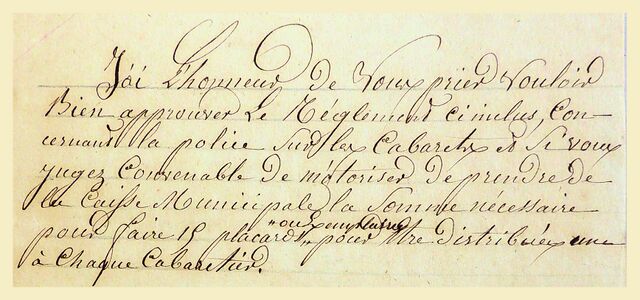 J'ai L'honneur de Vous prier Vouloir
Bien approuver Le Réglement ci inclus, Con-
cernant la police Sur les Cabarets et Si vous
jugez Convenable de m'atoriser de prendre de
la Caisse Municipale la Somme nécessaire
pour faire 15 placards "ou Exemplaires" pour être distribués une
à Chaque Cabaretier.